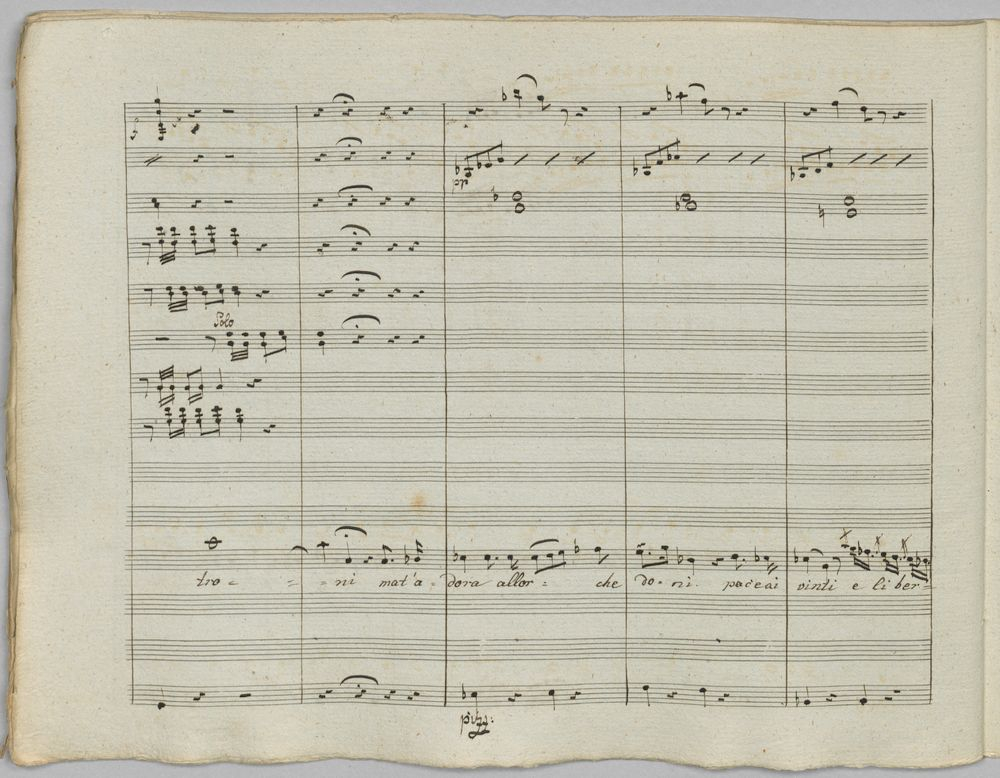 f
p
Solo
tro - - - ni mat'a - dora allor - che do - ni pace ai vinti e liber -
pizz: